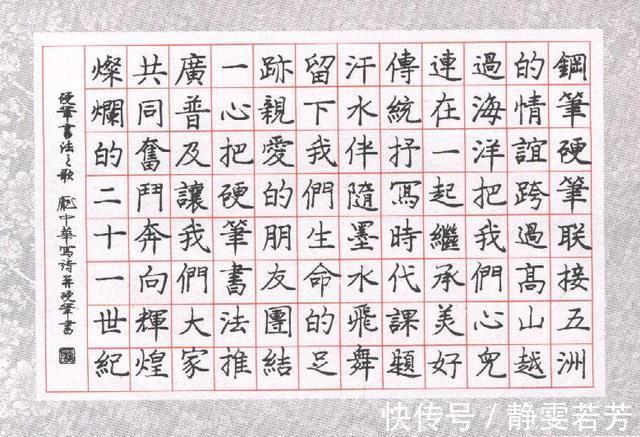 鋼筆硬筆聯接五洲
的情誼跨過高山越
過海洋把我們心兒
連在一起繼承美好
傳統抒寫時代課題
汗水伴隨墨水飛舞
留下我們生命的足
跡親愛的朋友團結
一心把硬筆書法推
廣普及讓我們大家
共同奮鬥奔向輝煌
燦爛的二十一世紀
硬筆書法之歌 龐中華寫詩并硬筆書
快传号 / 静雯若芳